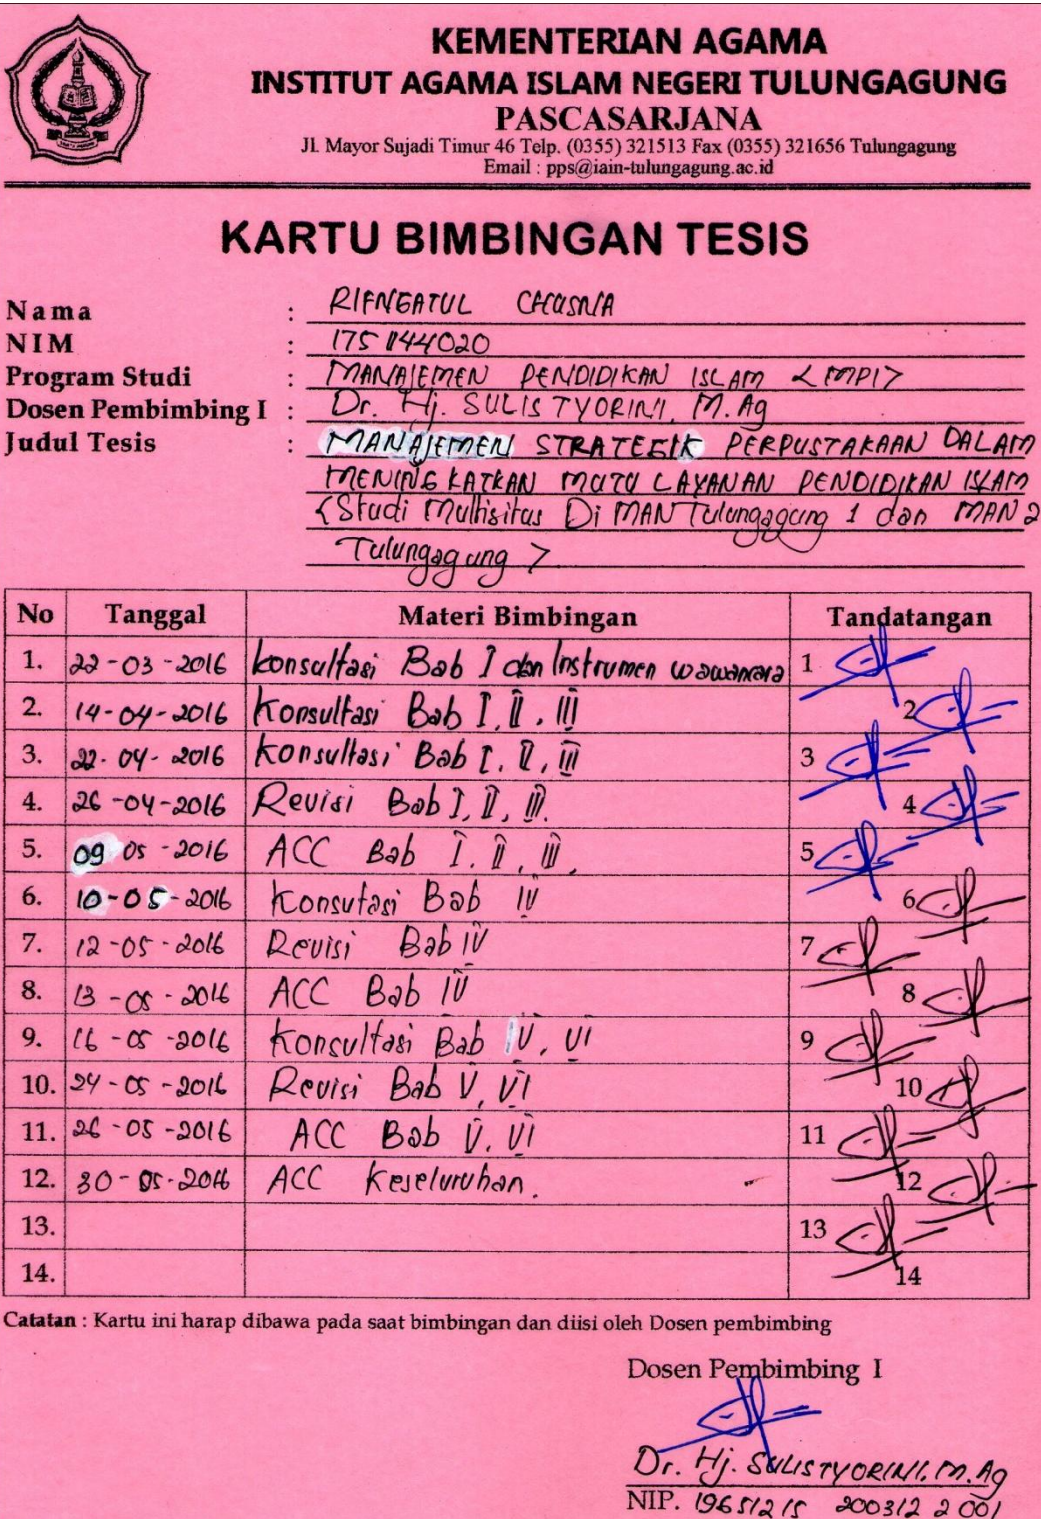 KEMENTERIAN AGAMA
INSTITUT AGAMA ISLAM NEGERI TULUNGAGUNG
PASCASARJANA
Jl. Mayor Sujadi Timur 46 Telp. (0355) 321513 Fax (0355) 321656 Tulungagung
Email : pps@iain-tulungagung.ac.id
KARTU BIMBINGAN TESIS
Nama : CHUSNA
NIM :
Program Studi : MANAJEMEN PENDIDIKAN ISLAM <MPI>
Dosen Pembimbing I : Dr. Hj. SULISTYORINI, M.Ag
Judul Tesis : MANAJEMEN STRATEGIK PERPUSTAKAAN DALAM
MENINGKATKAN MUTU LAYANAN PENDIDIKAN ISLAM
<Studi Multisitus Di MAN Tulungagung 1 dan MAN 2
Tulungagung >
No Tanggal Materi Bimbingan Tandatangan
1. 22-03-2016 Konsultasi Bab I dan Instrumen wawancara 1
2. 14-04-2016 Konsultasi Bab I, II, III 2
3. 22-04-2016 Konsultasi Bab I, II, III 3
4. 26-04-2016 Revisi Bab I, II, III. 4
5. 09 05-2016 ACC Bab I, II, III, 5
6. 10-05-2016 Konsutasi Bab IV 6
7. 12-05-2016 Revisi Bab IV 7
8. 13-05-2016 ACC Bab IV 8
9. 16-05-2016 Konsultasi Bab V, VI 9
10. 24-05-2016 Revisi Bab V, VI 10
11. 26-05-2016 ACC Bab V, VI 11
12. 30-05-2016 ACC Keseluruhan. 12
13. 13
14. 14
Catatan : Kartu ini harap dibawa pada saat bimbingan dan diisi oleh Dosen pembimbing
Dosen Pembimbing I
Dr. Hj. SULISTYORINI, M.Ag
NIP. 19651215 200312 2 001